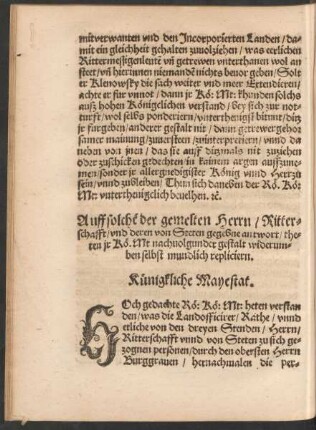 mitverwanten vnd den Incorporierten Landen / da-
mit ein gleichheit gehalten zuuolziehen / was eerlichen
Rittermessigenleüt vñ getrewen vnterthanen wol an
steet / vñ hierinnen niemandē nichts beuor geben / Solt
er Klenowsky die sach weiter vnd merer Extendieren /
achte er für vnnot / dann jr Kö: Mt: khünden solchs
auß hohen Königelichen verstand / bey sich zur not-
turfft / wol selbs ponderiern / vnterthenigst bittnt / ditz
jr fürgeben / anderer gestalt nit / dann getrewer gehor
samer mainung / zuuersteen / zuinterpretiern / vnnd da
neben von jnen / das sie auff ditzmals nit zuziehen
oder zuschicken gedechten / in kainem argen auffzune-
men / sonder jr allergnedigister König vnnd Herr zu
sein / vnnd zubleiben / Thun sich daneben der Rö. Kö:
Mt: vnterthenigclich beuelhen. ꝛc.
Auff solche der gemelten Herrn / Ritter-
schafft / vnd deren von Steten gegebne antwort / the-
ten jr Kö. Mt: nachuolgunder gestalt widerumb-
ben selbst mundlich replicieren.
Künigkliche Mayestat.
HOch gedachte Rö: Kö: Mt: heten verstan
den / was die Landofficirer / Räthe / vnnd
etliche von den dreyen Stenden / Herrn /
Ritterschafft vnnd von Steten zu sich ge-
zognen personen / durch den obersten Herrn
Burggrauen / hernachmalen die per-